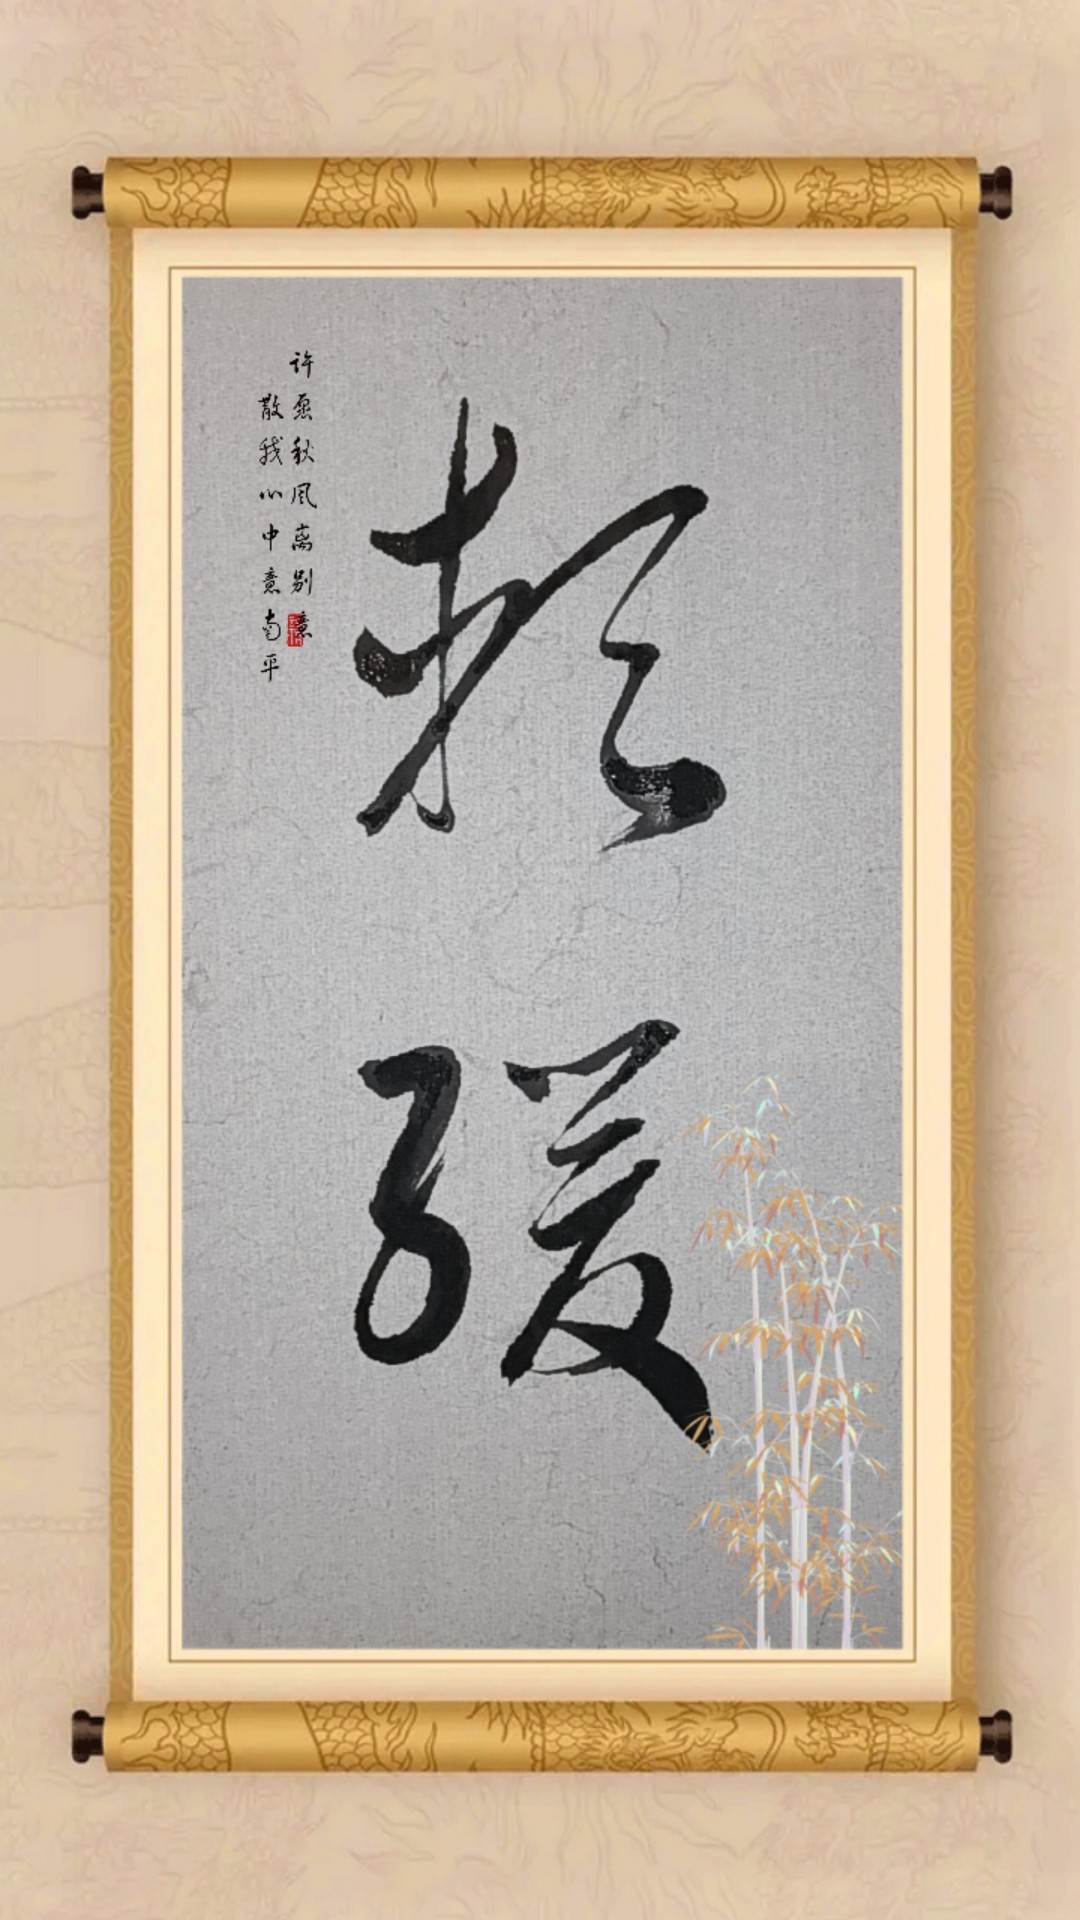 频缓
许愿秋风离别意
散我心中意南平